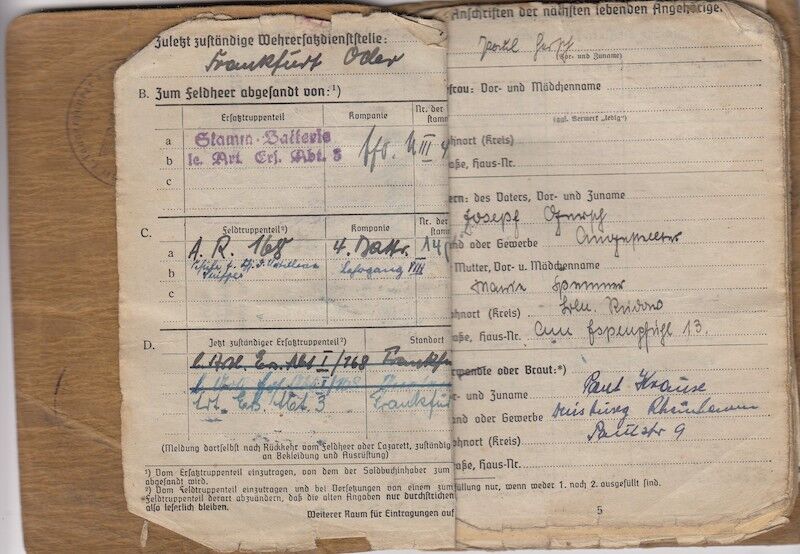 Zuletzt zuständige Wehrersatzdienststelle:
Frankfurt Oder
B. Zum Feldheer abgesandt von:¹)
Ersatztruppenteil Kompanie Nr. der
Stam
a Stamm-Batterie
b le. Art. Ers. Abt. 8
c
C. Feldtruppenteil²) Kompanie Nr. der
Stam
a A. R. 168 4. Battr. 14
b Lehrgang VIII
c
D. Jetzt zuständiger Ersatztruppenteil²) Standort
I/168 Frankfu
Art. Ers. Abt. 3 Frankfur
(Meldung dortselbst nach Rückkehr vom Feldheer oder Lazarett, zuständig
an Bekleidung und Ausrüstung)
¹) Vom Ersatztruppenteil einzutragen, von dem der Soldbuchinhaber zum
abgesandt wird.
²) Vom Feldtruppenteil einzutragen und bei Versetzungen von einem zum
Feldtruppenteil derart abzuändern, daß die alten Angaben nur durchstrichen
also leserlich bleiben.
Weiterer Raum für Eintragungen auf
Anschriften der nächsten lebenden Angehörige.
(Vor- und Zuname)
frau: Vor- und Mädchenname
(ggf. Vermerk „ledig")
hnort (Kreis)
aße, Haus-Nr.
ern: des Vaters, Vor- und Zuname
Joseph
nd oder Gewerbe Angestellter
Mutter, Vor- u. Mädchenname
Maria
hnort (Kreis) Bln. Rudow
aße, Haus-Nr. Am Espenpfuhl 13.
rwandte oder Braut:*)
- und Zuname Paul Krause
nd oder Gewerbe Duisburg Rheinhausen
hnort (Kreis) Paulstr 9
aße, Haus-Nr.
füllung nur, wenn weder 1. noch 2. ausgefüllt sind.
5